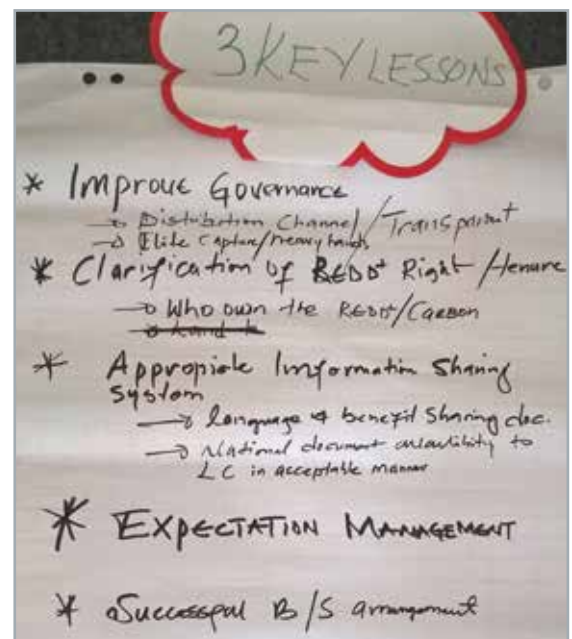 3 KEY LESSONS
* Improve Governance
→ Distribution Channel/Transparent
→ Elite Capture/heavy hands
* Clarification of REDD+ Right/tenure
→ Who own the REDD+/Carbon
* Appropiate Information Sharing
System
→ language & benefit sharing doc.
→ National document availability to
LC in acceptable manner
* EXPECTATION MANAGEMENT
* Successful B/S arrangement